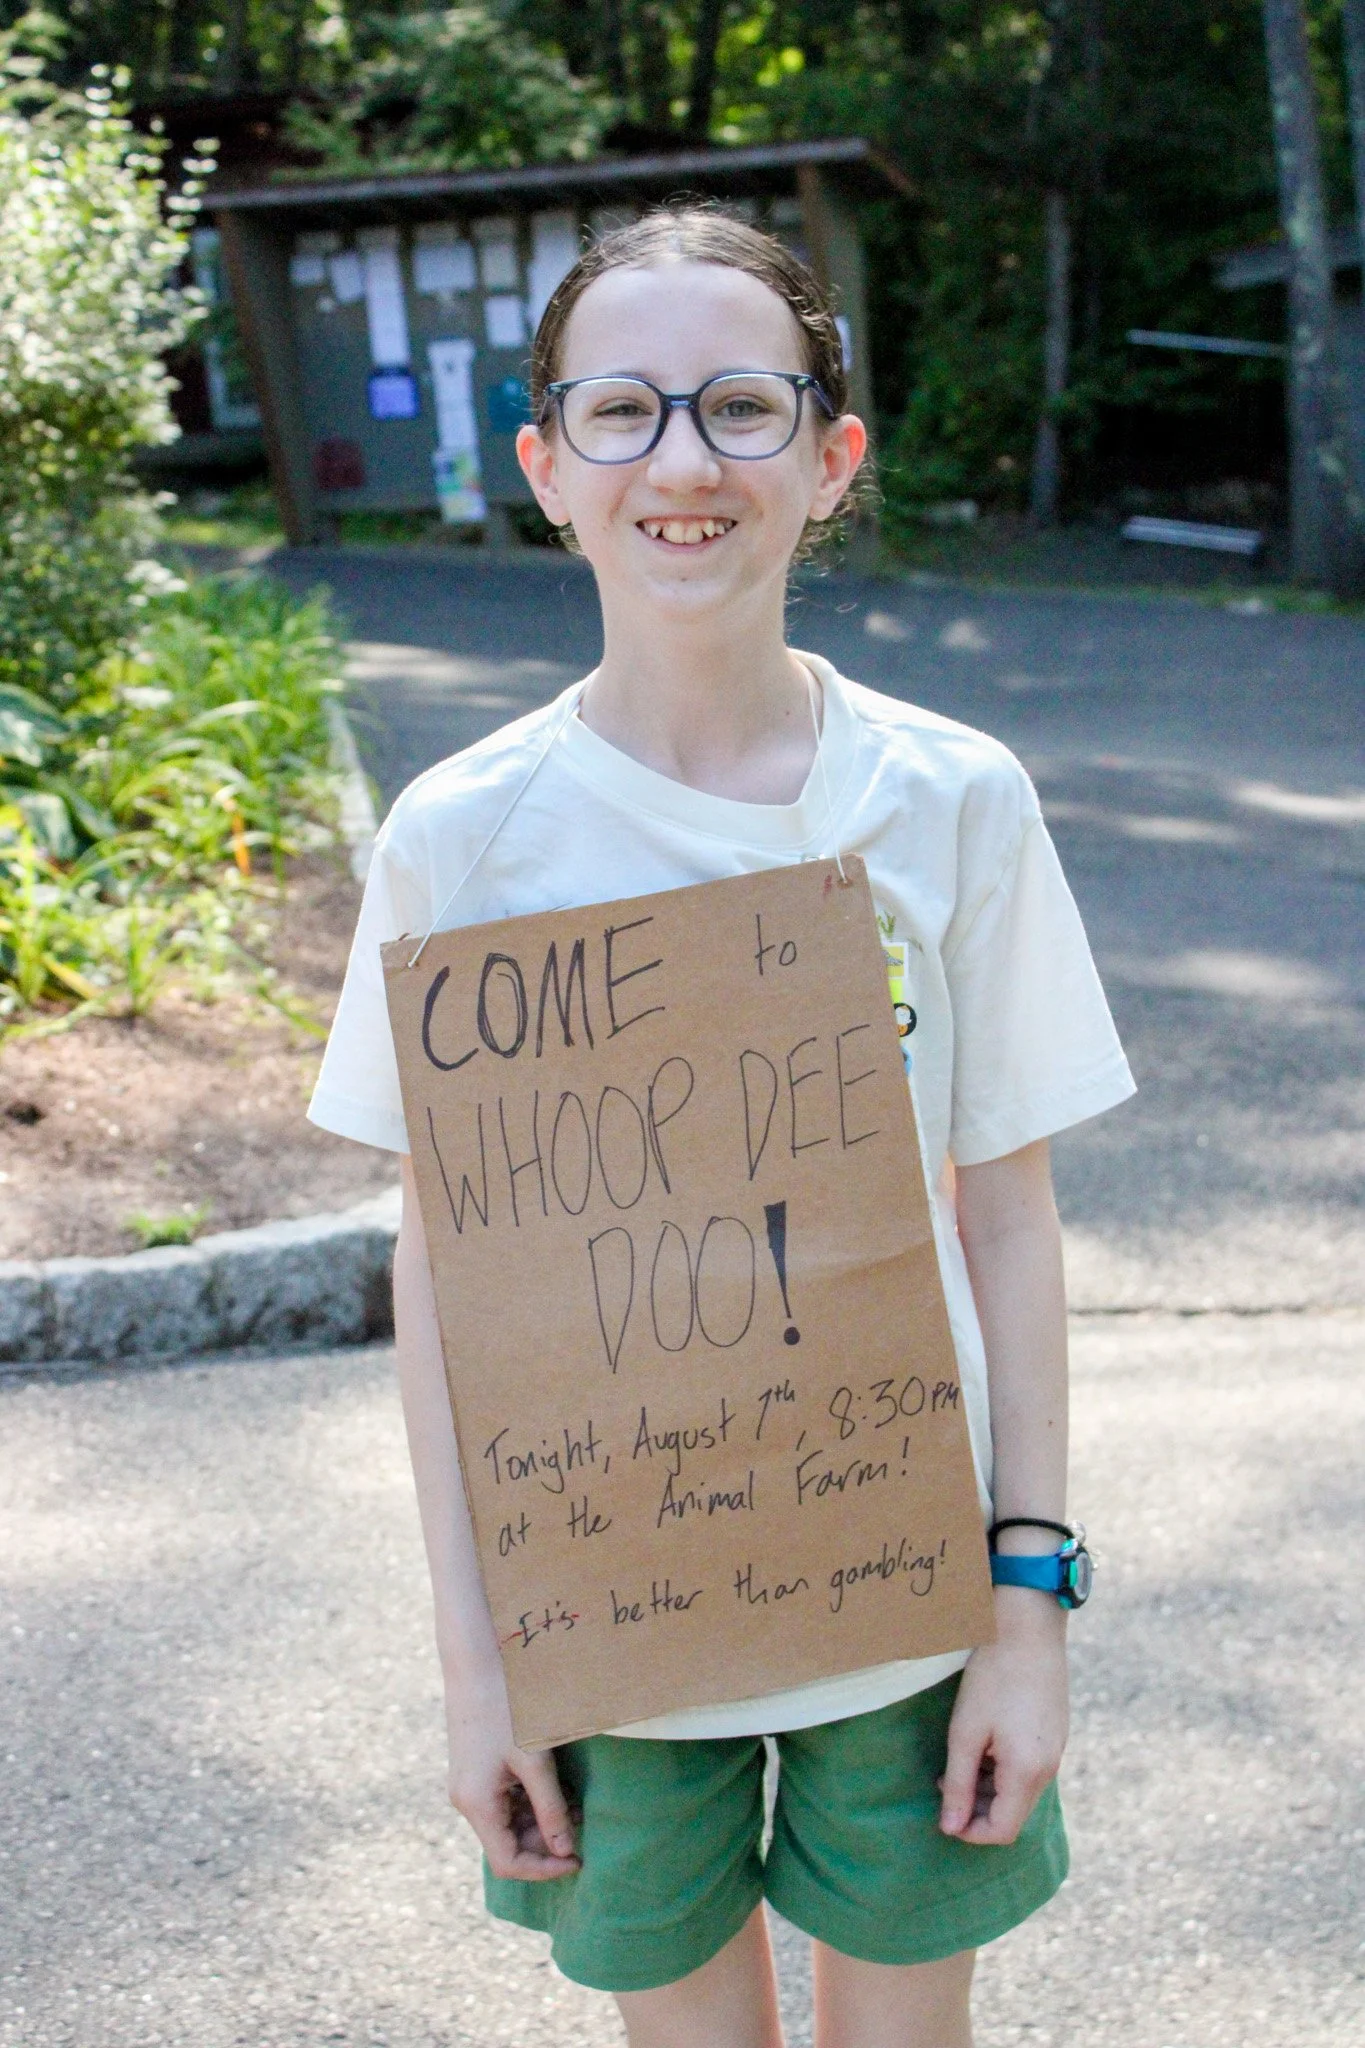 COME to
WHOOP DEE
DOO!
Tonight, August 7th, 8:30PM
at the Animal Farm!
It's better than gambling!